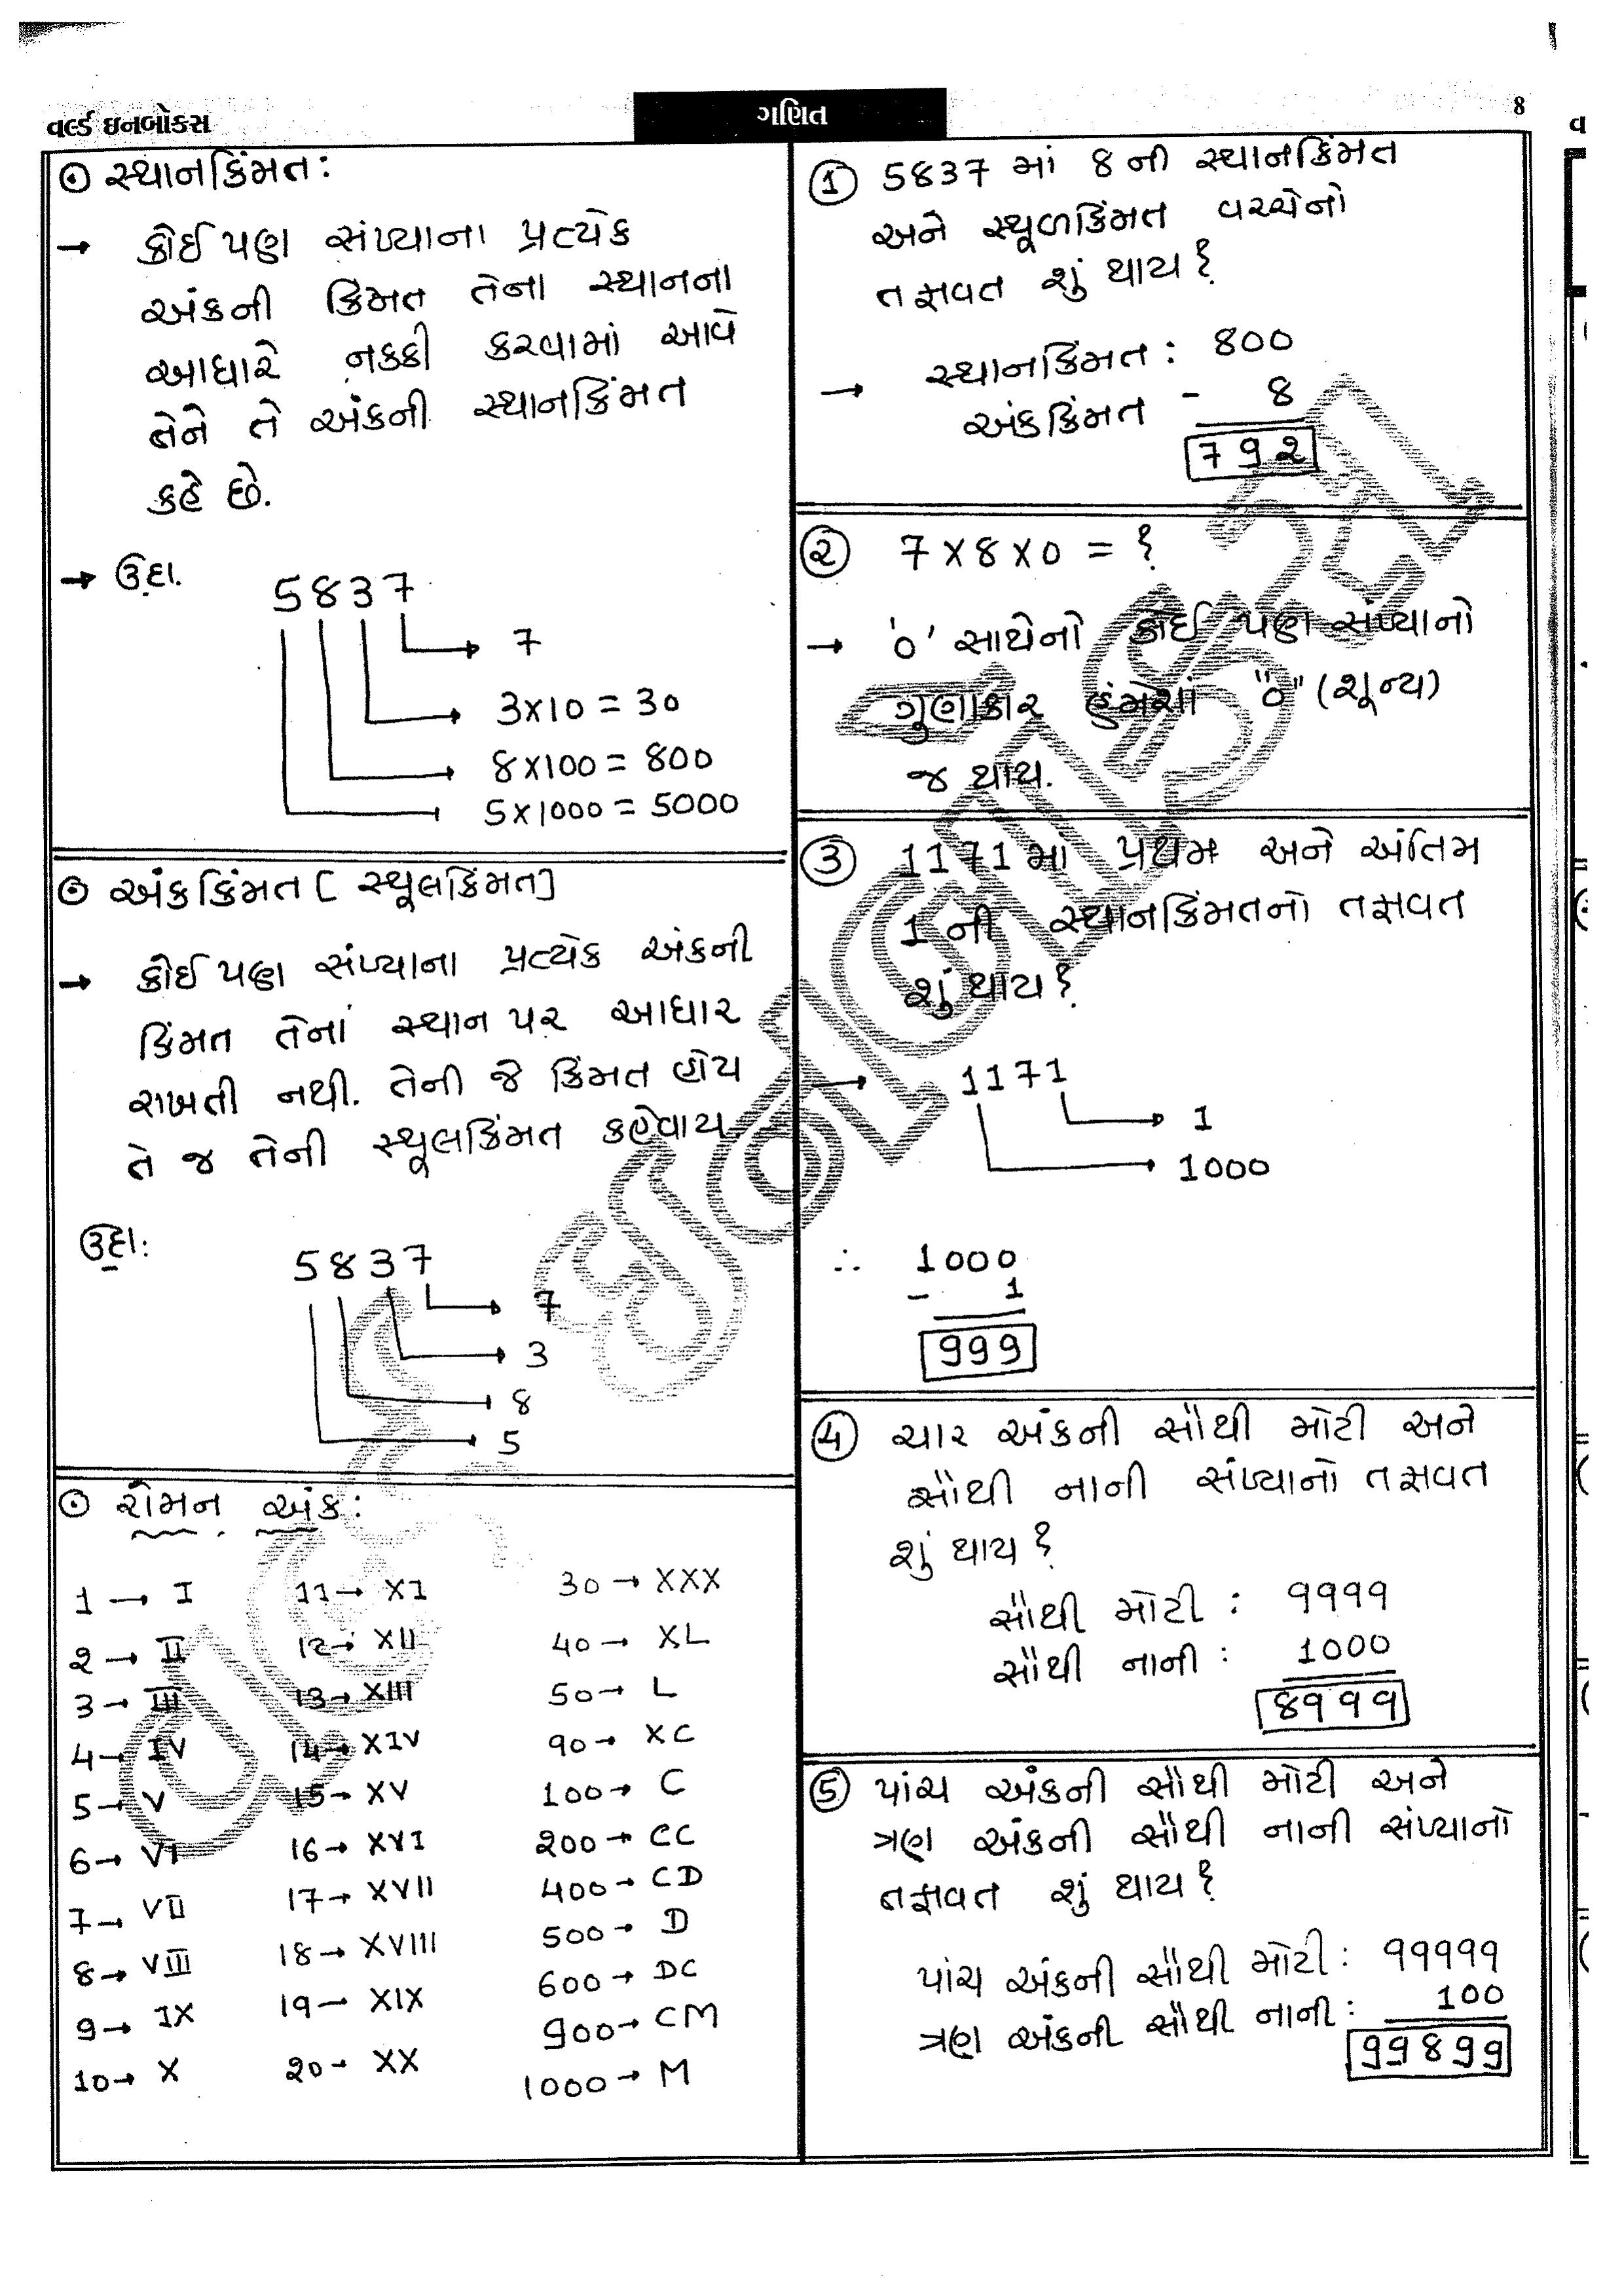 વર્લ્ડ ઇનબોક્સ
ગણિત
8
⊙ સ્થાનકિંમત:
→ કોઈ પણ સંખ્યાના પ્રત્યેક
અંકની કિંમત તેના સ્થાનના
આધારે નક્કી કરવામાં આવે
તેને તે અંકની સ્થાનકિંમત
કહે છે.
→ ઉદા.
5837
7
3x10 = 30
8x100 = 800
5x1000 = 5000
⊙ અંકકિંમત [સ્થૂલકિંમત]
→ કોઈ પણ સંખ્યાના પ્રત્યેક અંકની
કિંમત તેનાં સ્થાન પર આધાર
રાખતી નથી. તેની જે કિંમત હોય
તે જ તેની સ્થૂલકિંમત કહેવાય.
ઉદા:
5837
7
3
8
5
⊙ રોમન અંક:
1 → I 11 → XI 30 → XXX
2 → II 12 → XII 40 → XL
3 → III 13 → XIII 50 → L
4 → IV 14 → XIV 90 → XC
5 → V 15 → XV 100 → C
6 → VI 16 → XVI 200 → CC
7 → VII 17 → XVII 400 → CD
8 → VIII 18 → XVIII 500 → D
9 → IX 19 → XIX 600 → DC
10 → X 20 → XX 900 → CM
1000 → M
① 5837 માં 8 ની સ્થાનકિંમત
અને સ્થૂળકિંમત વચ્ચેનો
તફાવત શું થાય?
→ સ્થાનકિંમત: 800
અંકકિંમત - 8
792
② 7x8x0 = ?
→ '0' સાથેનો કોઈ પણ સંખ્યાનો
ગુણાકાર હંમેશાં "0" (શૂન્ય)
જ થાય.
③ 1171 માં પ્રથમ અને અંતિમ
1 ની સ્થાનકિંમતનો તફાવત
શું થાય?
→ 1171
1
1000
∴ 1000
- 1
999
④ ચાર અંકની સૌથી મોટી અને
સૌથી નાની સંખ્યાનો તફાવત
શું થાય?
સૌથી મોટી: ૧૧૧૧
સૌથી નાની: 1000
8૧૧૧
⑤ પાંચ અંકની સૌથી મોટી અને
ત્રણ અંકની સૌથી નાની સંખ્યાનો
તફાવત શું થાય?
પાંચ અંકની સૌથી મોટી: ૧૧૧૧૧
ત્રણ અંકની સૌથી નાની: 100
99899